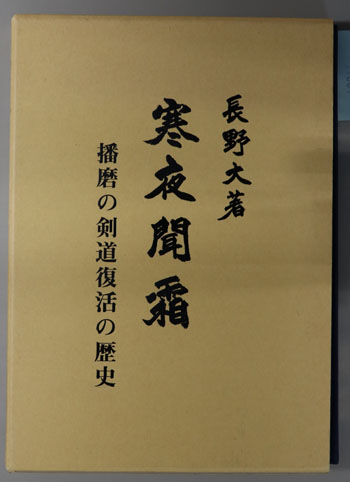 長野大著
寒夜聞霜
播磨の剣道復活の歴史